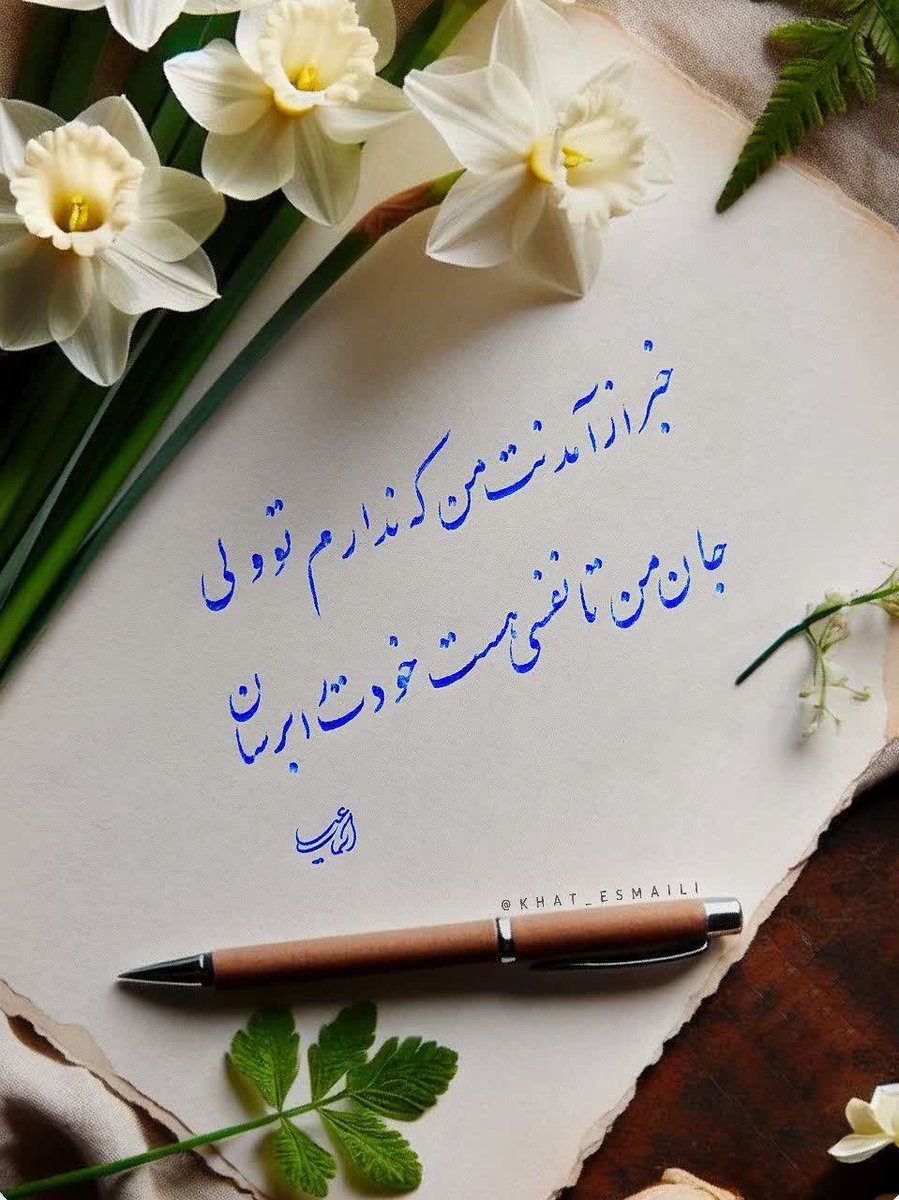 خبر از آمدنت من که ندارم تو ولی
جان من تا نفسی هست خودت را برسان
@KHAT_ESMAILI